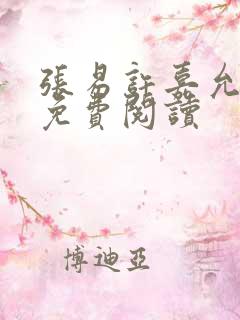 張易許嘉允
免費閱讀
博迪亞